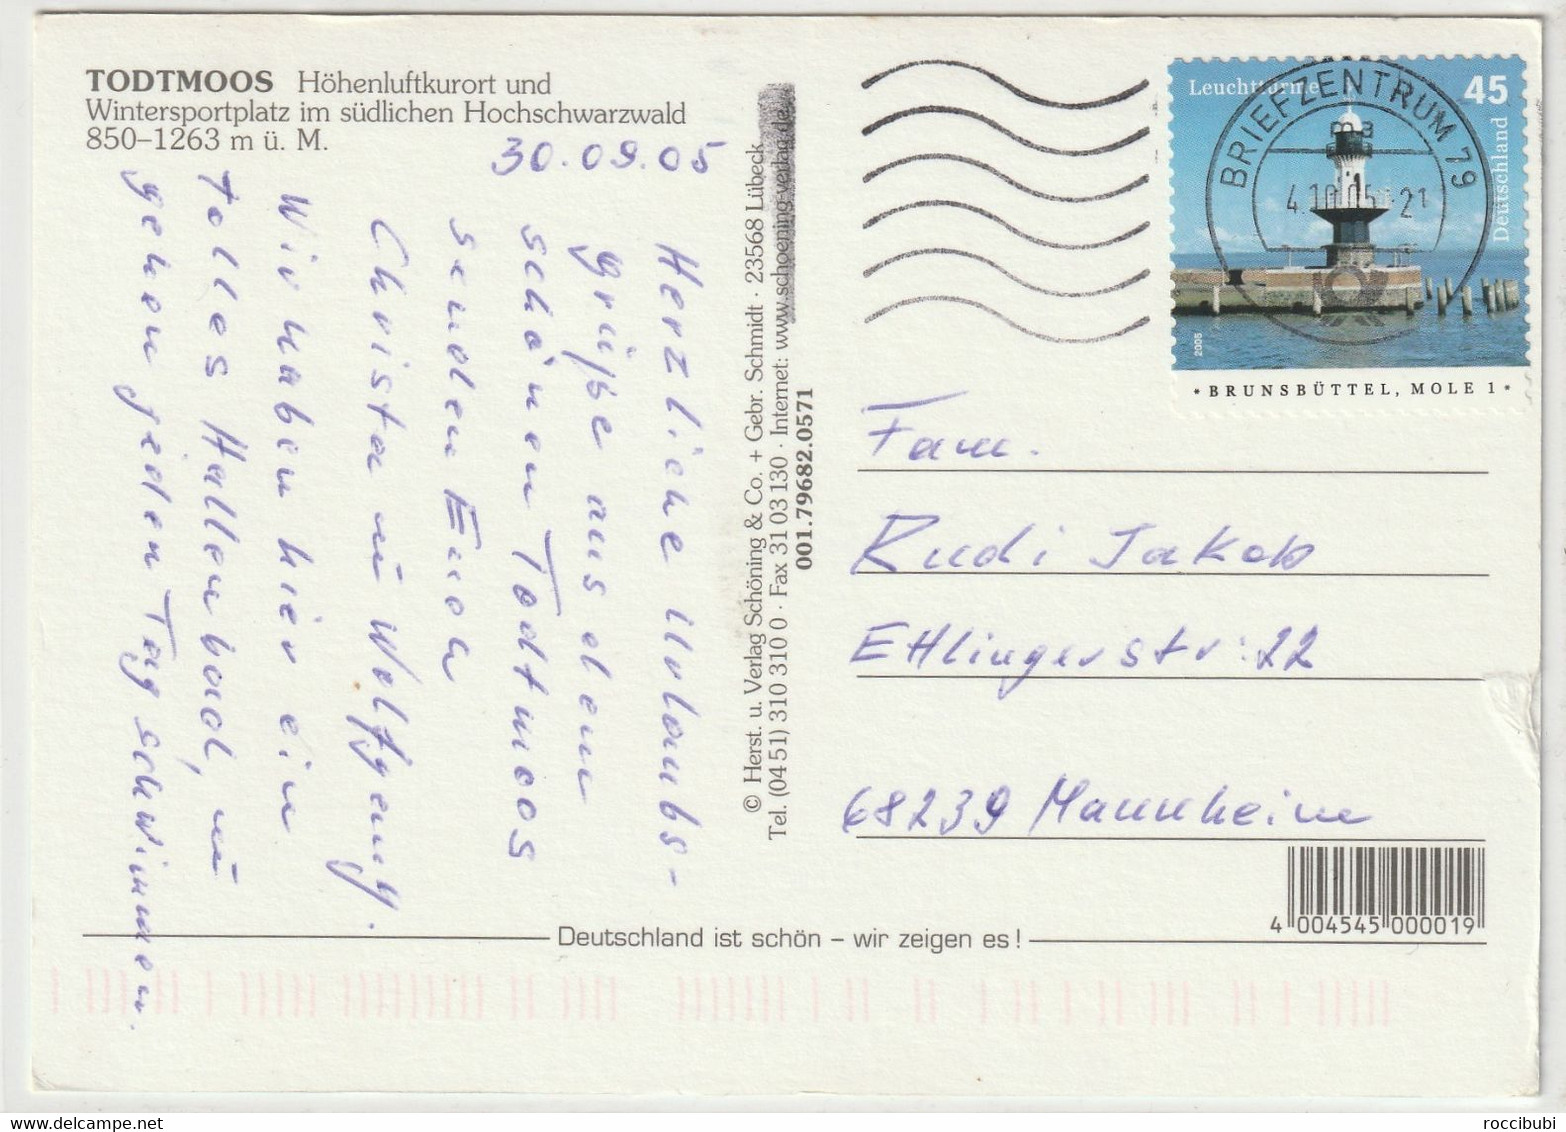 TODTMOOS Höhenluftkurort und
Wintersportplatz im südlichen Hochschwarzwald
850–1263 m ü. M.
30.09.05
Herzliche Urlaubs-
grüße aus dem
schönen Todtmoos
senden Euch
Christa u Wolfgang.
Wir haben hier ein
tolles Hallenbad, wir
gehen jeden Tag schwimmen.
© Herst. u. Verlag Schöning & Co. + Gebr. Schmidt · 23568 Lübeck
Tel. (04 51) 310 310 0 · Fax 31 03 130 · Internet: www.schoening-verlag.de
001.79682.0571
Leuchttürme 45
Deutschland
2005
* BRUNSBÜTTEL, MOLE 1 *
BRIEFZENTRUM 79
ma
4.10.05-21
Fam.
Rudi Jakob
Ettlingerstr. 22
68239 Mannheim
4 004545 000019
Deutschland ist schön – wir zeigen es!
roccibubi